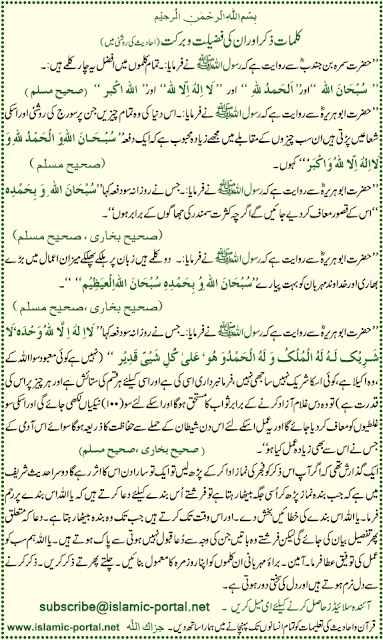 بِسْمِ اللهِ الرَّحْمٰنِ الرَّحِيْمِ
کلمات ذکر اور ان کی فضیلت و برکت (احادیث کی روشنی میں)
”حضرت سمرہ بن جندبؓ سے روایت ہے کہ رسول اللہ ﷺ نے فرمایا:۔ تمام کلموں میں افضل یہ چار کلمے ہیں:۔
” سُبْحَانَ اللهِ “ اور ” اَلْحَمْدُ لِلّٰهِ “ اور ” لَا اِلٰهَ اِلَّا لله “ اور ” الله اكْبر “ (صحیح مسلم)
”حضرت ابو ہریرہؓ سے روایت ہے کہ رسول اللہ ﷺ نے فرمایا:۔ اس دنیا کی وہ تمام چیزیں جن پر سورج کی روشنی اور اسکی
شعاعیں پڑتی ہیں ان سب چیزوں کے مقابلے میں مجھے زیادہ محبوب ہے کہ ایک دفعہ ” سُبْحَانَ اللهِ وَ الْحَمْدُ لِلّٰهِ وَ لَا
لَااِلٰهَ اِلَّا للهُ وَاكْبَر “ کہوں۔ (صحیح مسلم)
”حضرت ابو ہریرہؓ سے روایت ہے کہ رسول اللہ ﷺ نے فرمایا:۔ جس نے روزانہ سو دفعہ کہا ”سُبْحَانَ اللهِ وَ بِحَمْدِهِ
“ اس کے قصور معاف کر دیے جائیں گے اگرچہ کثرت سمندر کی جھاگوں کے برابر ہوں“۔
(صحیح بخاری ،صحیح مسلم)
”حضرت ابو ہریرہؓ سے روایت ہے کہ رسول اللہ ﷺ نے فرمایا:۔ دو کلمے ہیں زبان پر ہلکے پھلکے میزان اعمال میں بڑے
بھاری اور خداوند مہربان کو بہت پیارے ”سُبْحَانَ اللهِ وُ بِحَمْدِهِ سُبْحَانَ اللهِ الْعَظِيْمِ “ “۔
(صحیح بخاری ،صحیح مسلم)
”حضرت ابو ہریرہؓ سے روایت ہے کہ رسول اللہ ﷺ نے فرمایا:۔ جس نے روزانہ سو دفعہ کہا ” لَااِ لهَ اِ لَّا للهُ وَحْدَهٗ لَا
شَرِيْكَ لَهٗ لَهُ الْمُلْكُ وَ لَهُ الْحَمْدُ وَهُوَ عَلىٰ كُلِّ شَيْئٍ قَدِيْر “ (نہیں ہے کوئی معبود سوا اللہ کے
، وہ اکیلا ہے، کوئی اسکا شریک نہیں ساجھی نہیں، فرمانبرداری اسی کی ہے اور اسی کیلئے ہر قسم کی ستائش ہے اور ہر چیز پر اس کی
قدرت ہے) تو وہ دس غلام آزاد کرنے کے برابر ثواب کا مستحق ہوگا اور اسکے لئے سو (۱۰۰) نیکیاں لکھی جائے گی اور اسکی سو
غلطیوں کو معاف کر دیا جائے گا اور یہ عمل اسکے لئے اس دن شیطان کے حملے سے حفاظت کا ذریعہ ہوگا سوائے اس آدمی کے
جس نے اس سے بھی زیادہ عمل کیا ہو“۔ (صحیح بخاری ،صحیح مسلم)
ایک گذارش تھی کہ اگر آپ اس ذکر کو فجر کی نماز ادا کر کے پڑھ لیں تو ایک تو سارا دن اس کا اثر رہے گا دوسرا حدیث شریف
میں ہے کہ جب بندہ نماز پڑھ کر اُسی جگہ بیٹھا رہتا ہے تو فرشتے اُس بندے کیلئے دعا کرتے ہیں کہ یا اللہ اس بندے پر رحم
فرما۔ یا اللہ اس بندے کی خطائیں بخش دے۔ اور اس وقت تک کرتے ہیں جب تک وہ بندہ بیٹھا رہتا ہے۔ دعا کے متعلق
پھر تفصیل بیان کی جائے گی لیکن فرشتے وہ ہیں جن کی وجہ سے دُعا قبول نہیں ہوتی سے پاک ہوتے ہیں۔ یا اللہ ہم سب کو
عمل کی توفیق عطا فرما۔ آمین۔ براؤ مہربانی ان کلموں کو اپنا روز مرہ کا معمول بنائیں۔ چلتے پھرتے ذکر کریں۔ ذکر کرنے
سے دل نرم ہوتے ہیں اور دل کی سختی دور ہوتی ہے۔
آئندہ سلائیڈز حاصل کرنے کیلئے ای میل کریں ۔ subscribe@islamic-portal.net
قرآن و احادیث کی تعلیمات کو تمام انسانوں تک پہنچانے میں ہمارا ساتھ دیں۔ جزاك الله www.islamic-portal.net